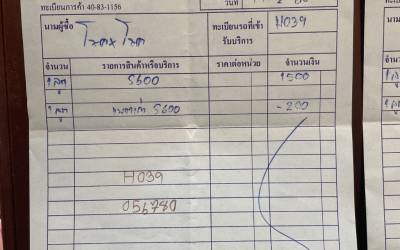 ทะเบียนการค้า 40-83-1156
วันที่
นามผู้ซื้อ
ทะเบียนรถที่เข้ารับบริการ H039
จำนวน รายการสินค้าหรือบริการ ราคาต่อหน่วย จำนวนเงิน
1 ลูก S600 1500
1 ลูก S600 -200
H039
056780